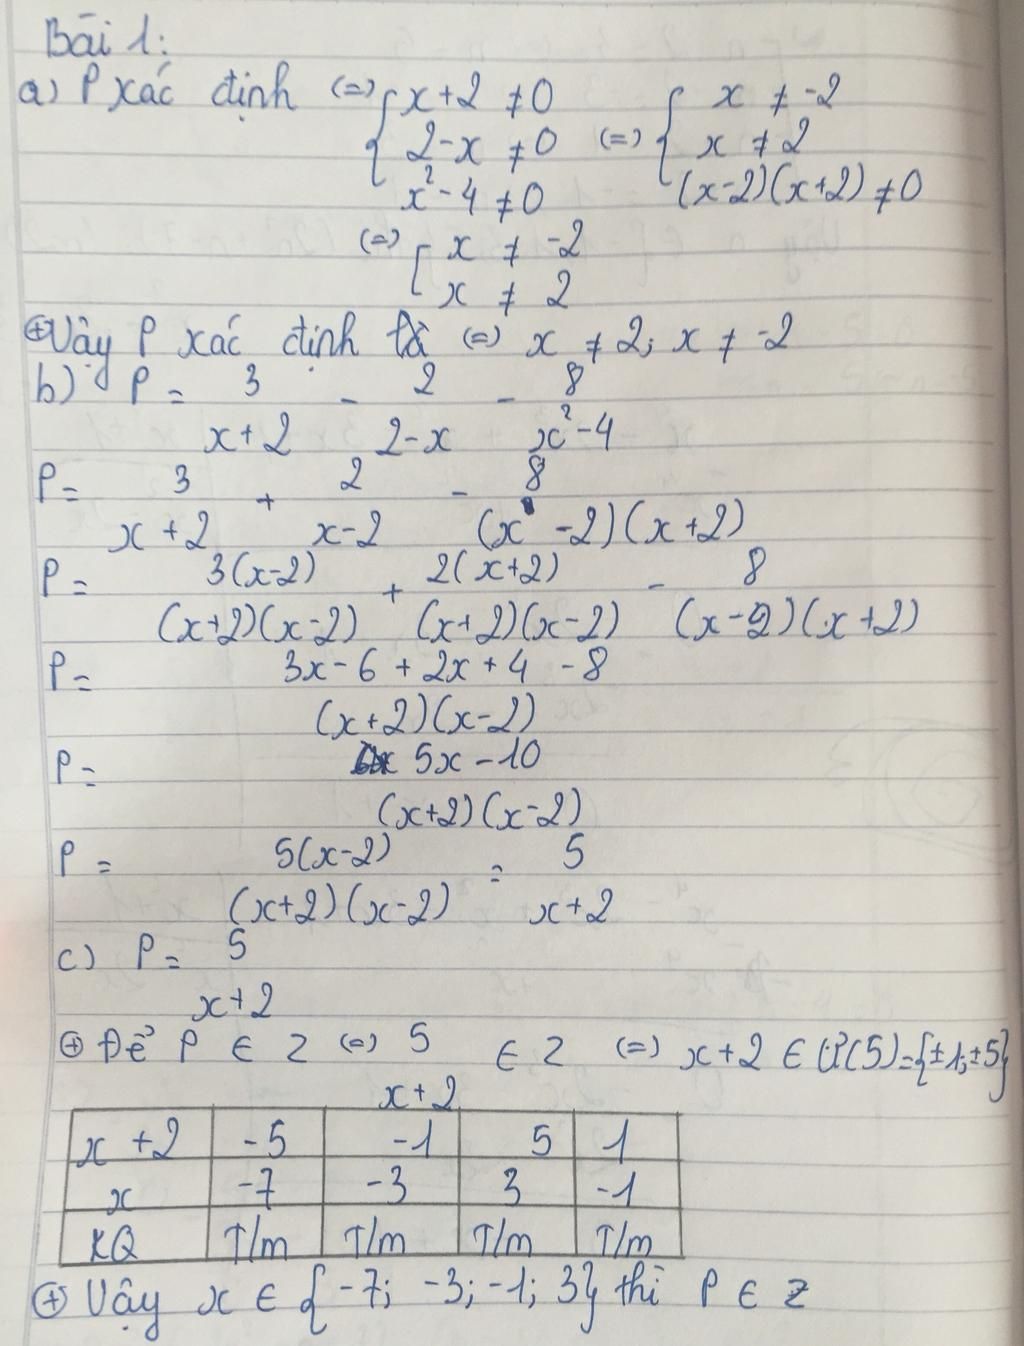 Bài 1:
a) P xác định (=) { x+2 ≠ 0 ; 2-x ≠ 0 ; x²-4 ≠ 0 (=) { x ≠ -2 ; x ≠ 2 ; (x-2)(x+2) ≠ 0
(=) [ x ≠ -2 ; x ≠ 2
⊕ Vậy P xác định (=) x ≠ 2; x ≠ -2
b) P = 3/(x+2) - 2/(2-x) - 8/(x²-4)
P = 3/(x+2) + 2/(x-2) - 8/((x-2)(x+2))
P = 3(x-2)/((x+2)(x-2)) + 2(x+2)/((x+2)(x-2)) - 8/((x-2)(x+2))
P = (3x-6+2x+4-8)/((x+2)(x-2))
P = (5x-10)/((x+2)(x-2))
P = 5(x-2)/((x+2)(x-2)) = 5/(x+2)
c) P = 5/(x+2)
⊕ Để P ∈ Z (=) 5/(x+2) ∈ Z (=) x+2 ∈ Ư(5)={±1;±5}
x+2 -5 -1 5 1
x -7 -3 3 -1
KQ T/m T/m T/m T/m
⊕ Vậy x ∈ {-7; -3; -1; 3} thì P ∈ Z